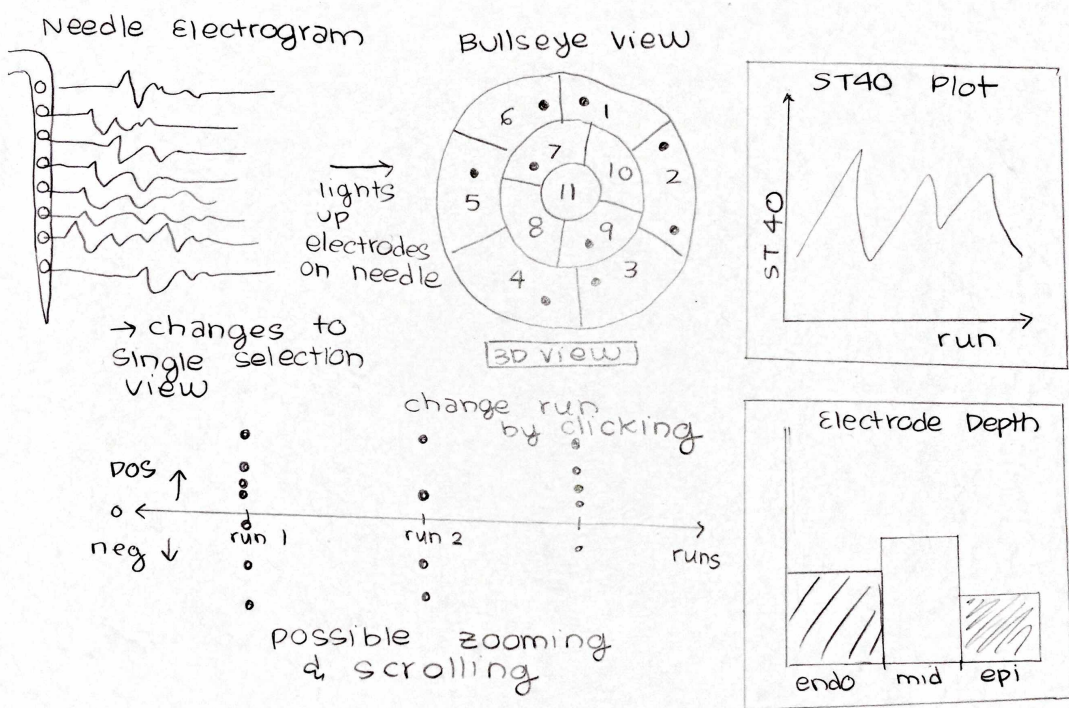 Needle Electrogram
→ lights
up
electrodes
on needle
→ changes to
single selection
view
Bullseye view
6
1
7
10
2
5
11
8
9
4
3
3D view
ST40 Plot
ST40
run
change run
by clicking
pos ↑
0
neg ↓
run 1
run 2
runs
possible zooming
& scrolling
Electrode Depth
endo
mid
epi